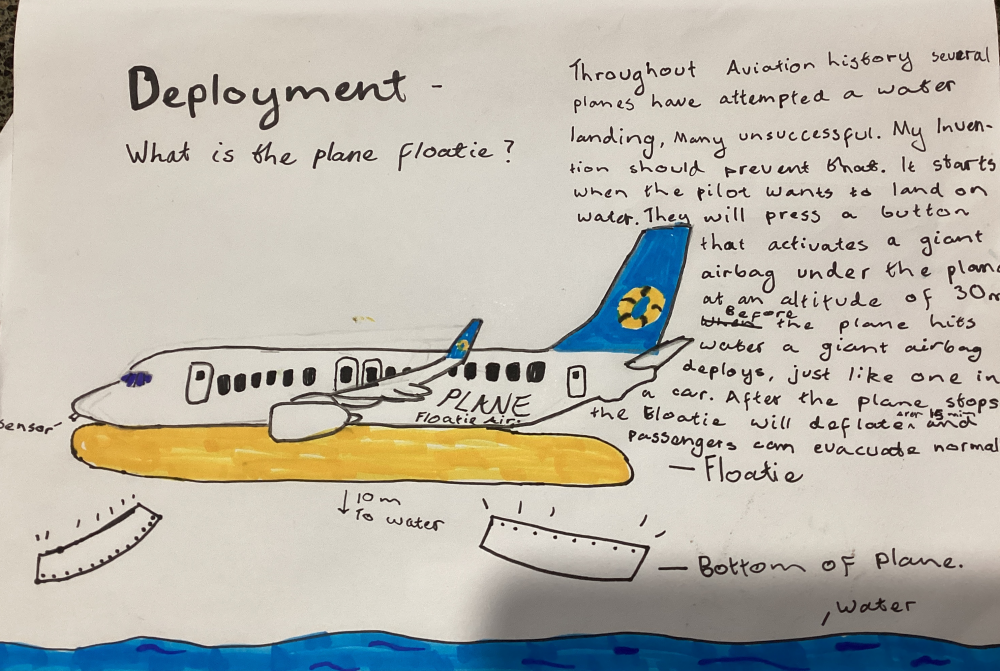 Deployment -
What is the plane floatie?
Throughout Aviation history several
planes have attempted a water
landing, Many unsuccessful. My Inven-
tion should prevent that. It starts
when the pilot wants to land on
water. They will press a button
that activates a giant
airbag under the plane
at an altitude of 30m
Before
When the plane hits
water a giant airbag
deploys, just like one in
a car. After the plane stops
the floatie will deflate and
passengers can evacuate normal
PLANE
Floatie Air.
sensor
Floatie
10m
To water
Bottom of plane.
water